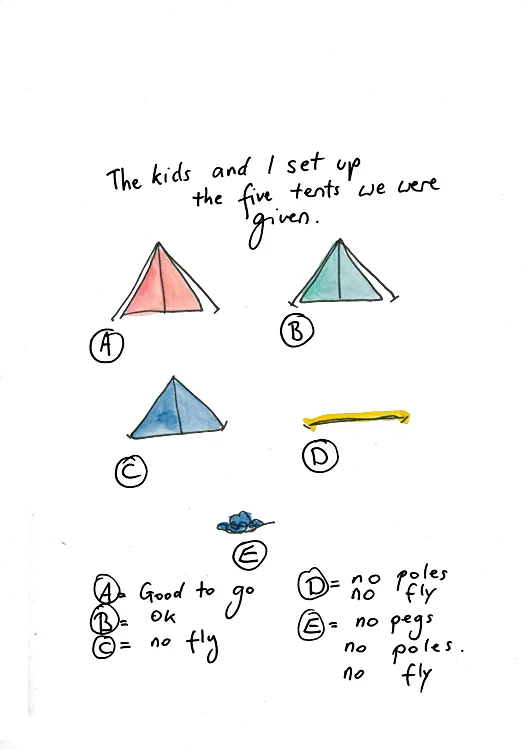 The kids and I set up
the five tents we were
given.
A
B
C
D
E
A = Good to go
B = OK
C = no fly
D = no poles
no fly
E = no pegs
no poles.
no fly